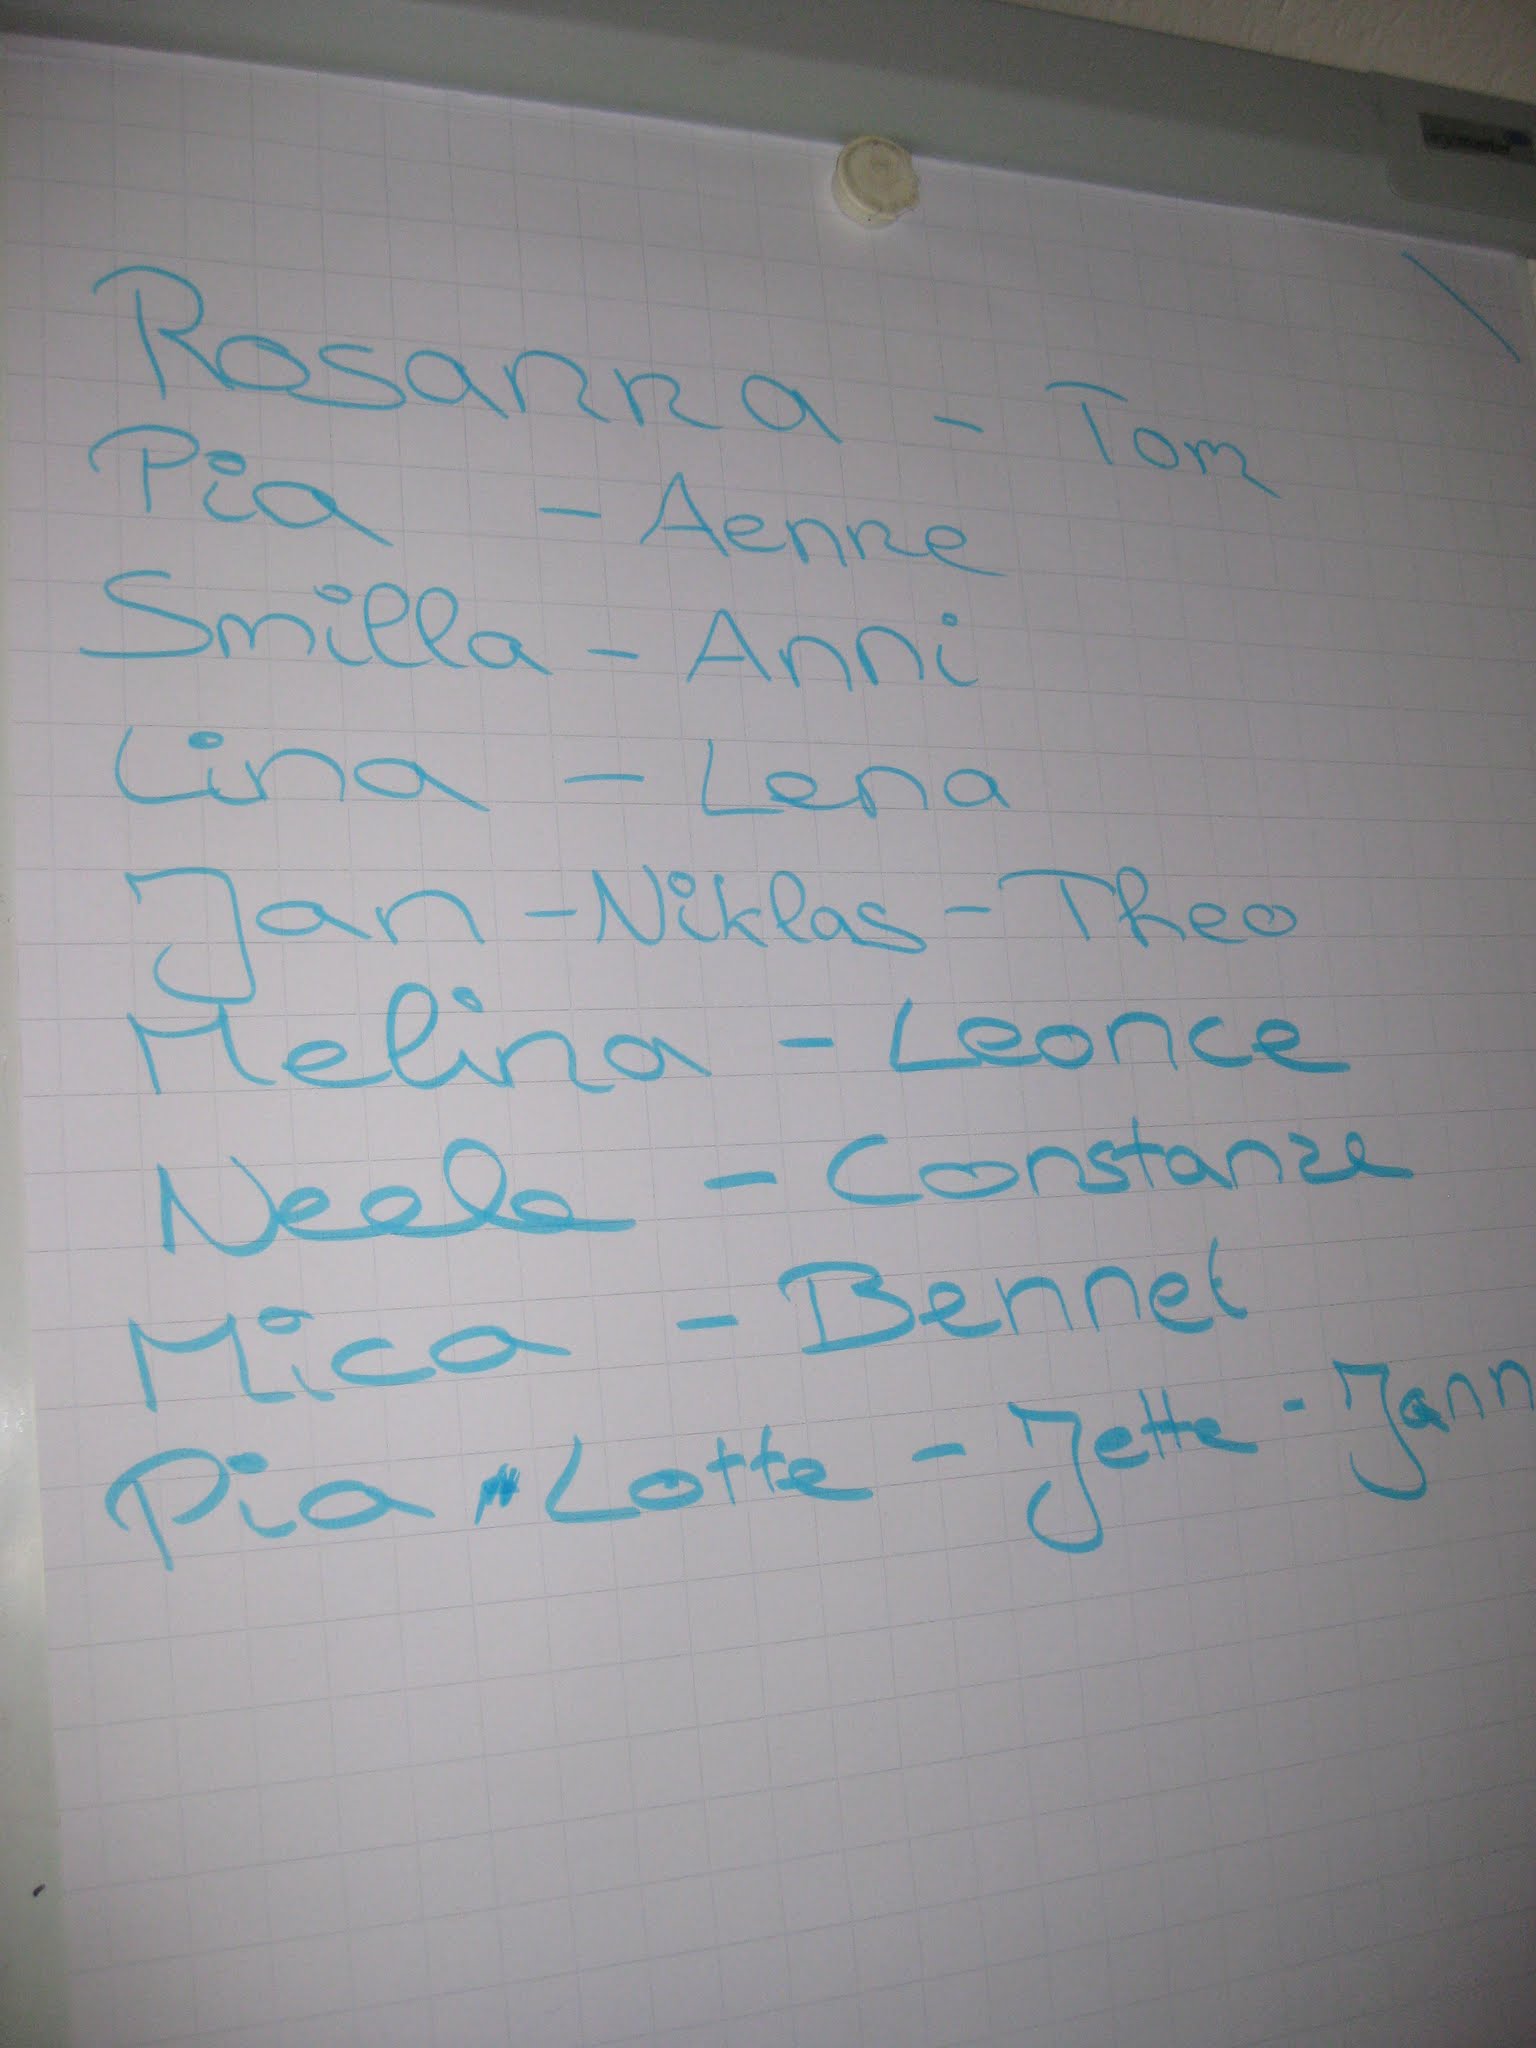 Rosanna - Tom
Pia - Aenne
Smilla - Anni
Lina - Lena
Jan - Niklas - Theo
Melina - Leonce
Neele - Constanze
Mica - Bennet
Pia - Lotte - Jette - Jann